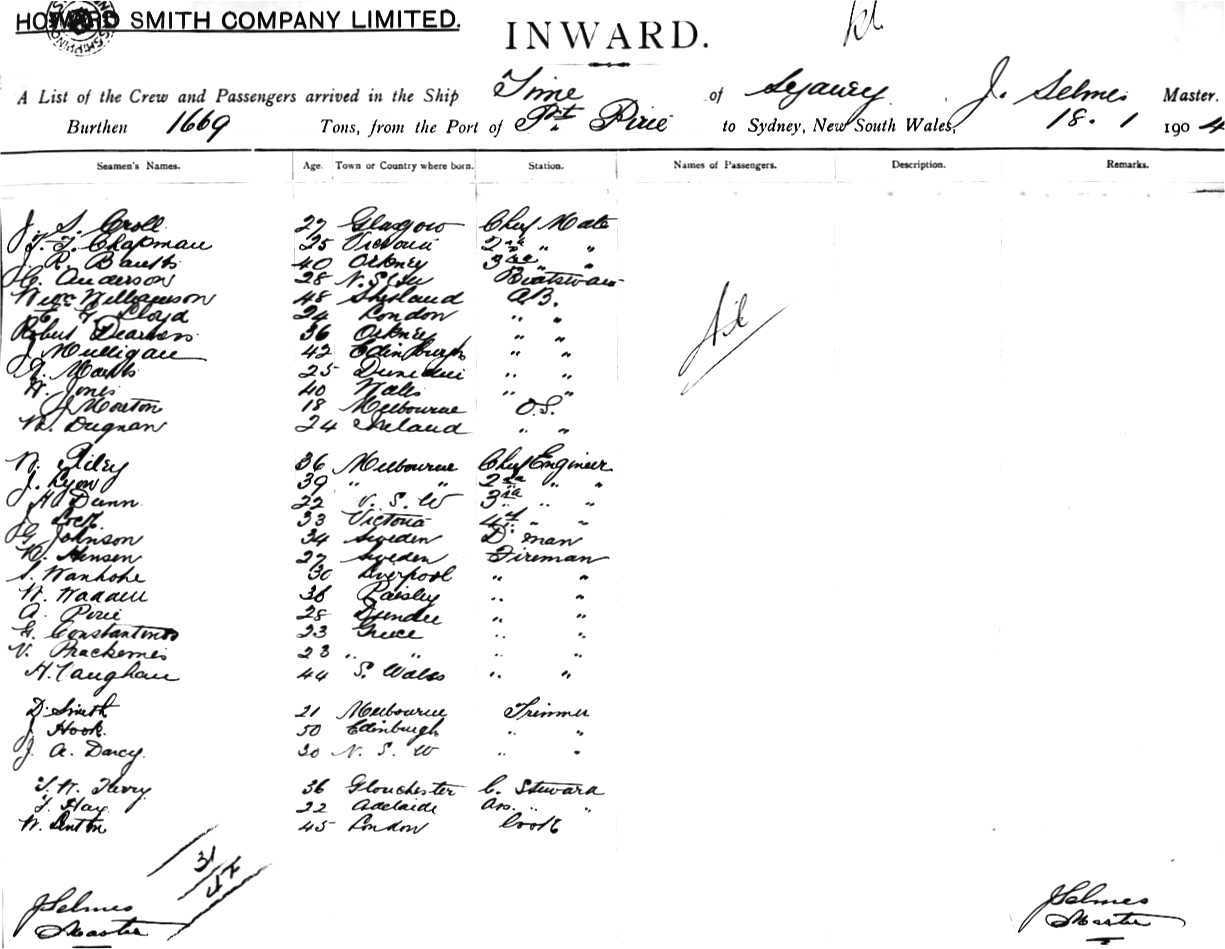 HOWARD SMITH COMPANY LIMITED.
INWARD.
A List of the Crew and Passengers arrived in the Ship Time of Sydney J. Selmes Master.
Burthen 1669 Tons, from the Port of Pt Pirie to Sydney, New South Wales, 18. 1 1904
Seamen's Names. Age. Town or Country where born. Station. Names of Passengers. Description. Remarks.
J. S. Croll 27 Glasgow Chief Mate
T. J. Chapman 25 Victoria 2nd " "
J R. Banks 40 Orkney 3rd " "
C. Anderson 28 N.S.W Boatswain
Wm Williamson 48 Shetland AB.
E. H. Lloyd 24 London " "
Robert Dearness 36 Orkney " "
J Mulligan 42 Edinburgh " "
A. Marks 25 Dunedin " "
W. Jones 40 Wales " "
J Morton 18 Melbourne O.S.
M. Dugnan 24 Ireland " "
Nil
W. Riley 36 Melbourne Chief Engineer
J. Lyon 39 " " 2nd " "
H Dunn 22 N. S. W 3rd " "
J Lock 33 Victoria 4th " "
G. Johnson 34 Sweden D. man
W. Hensen 27 Sweden Fireman
S. Wanhohe 30 Liverpool " "
W. Waddell 36 Paisley " "
A. Pirie 28 Dundee " "
G. Constantinos 23 Greece " "
V. 23 " " " "
H. Vaughan 44 S. Wales " "
D. Smith 21 Melbourne Trimmer
J Hook. 50 Edinburgh " "
J. A. Darcy. 30 N. S. W " "
T. W. 36 Glouchester C. Steward
T. Hay 22 Adelaide Ass. " "
W. Linton 45 London Cook
31
J Selmes J Selmes
Master Master